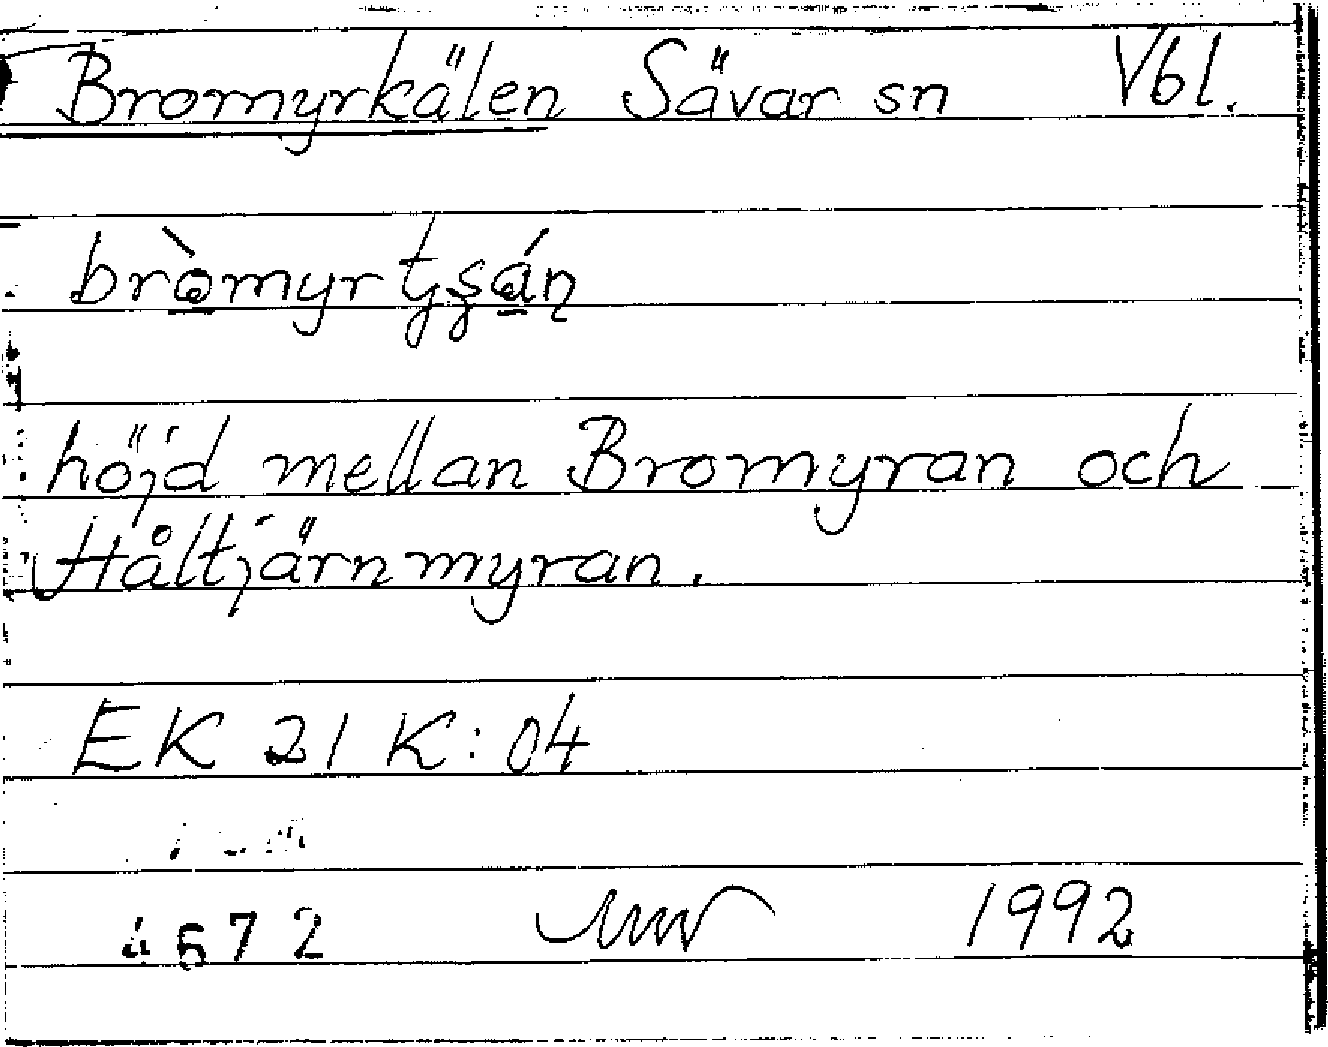 Bromyrkälen Sävar sn Vbl.
bròmyrtşán
höjd mellan Bromyran och
Håltjärnmyran.
EK 21 K:04
672 1992